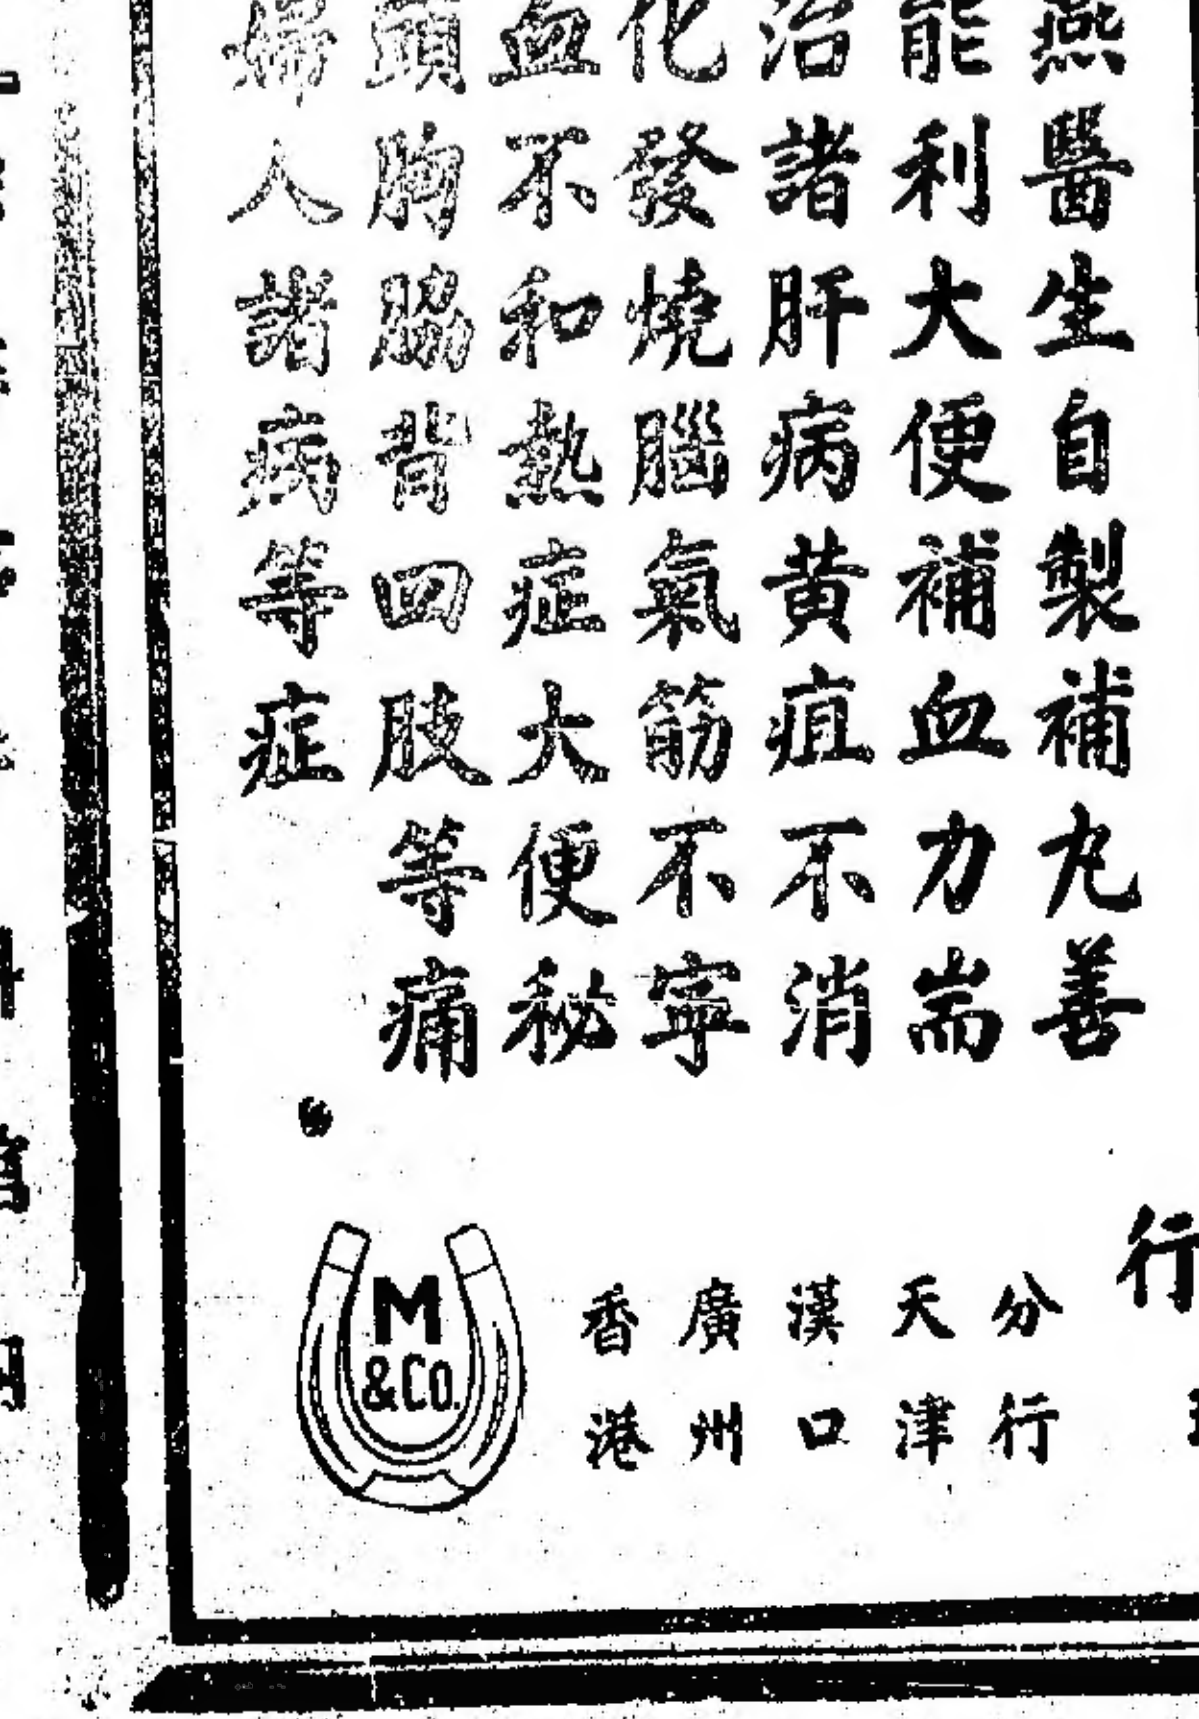 燕醫生自製補丸善
能利大便補血力耑
治諸肝病黃疸不消
化發燒腦氣筋不寧
血不和熱症大便秘
頭胸脇背四肢等痛
婦人諸病等症
行
分行
天津
漢口
廣州
香港
M
&Co.